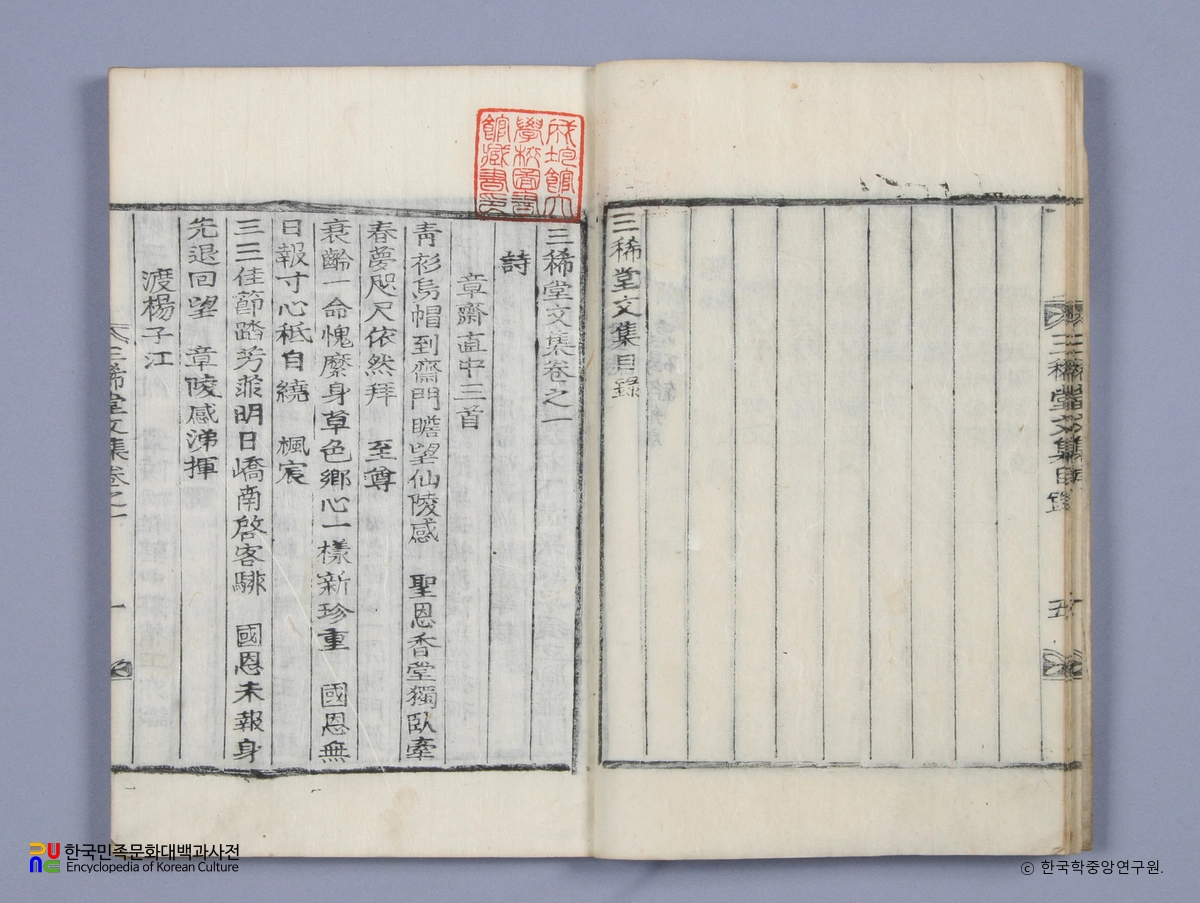 三稀堂文集目錄
三稀堂文集目錄
五
三稀堂文集卷之一
詩
章齋直中三首
靑衫烏帽到齋門瞻望仙陵感 聖恩香堂獨臥牽
春夢咫尺依然拜 至尊
衰齡一命愧縻身草色鄕心一樣新珍重 國恩無
日報寸心秪自繞 楓宸
三三佳節踏芳菲明日嶠南啓客騑 國恩未報身
先退回望 章陵感涕揮
渡楊子江
三稀堂文集卷之一
一
成均館大
學校圖書
館藏書印
한국민족문화대백과사전
Encyclopedia of Korean Culture
ⓒ 한국학중앙연구원.